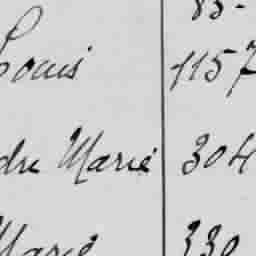 85-
Louis 1157
dre Marie 304
Marie 330